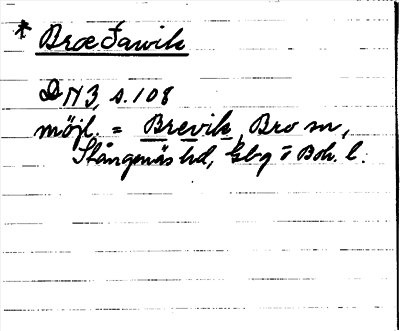 * Broe Fawik
DN 3, s. 108
möjl. = Brevik, Bro sn,
Stångenäs hd, Gbg o Boh. l.